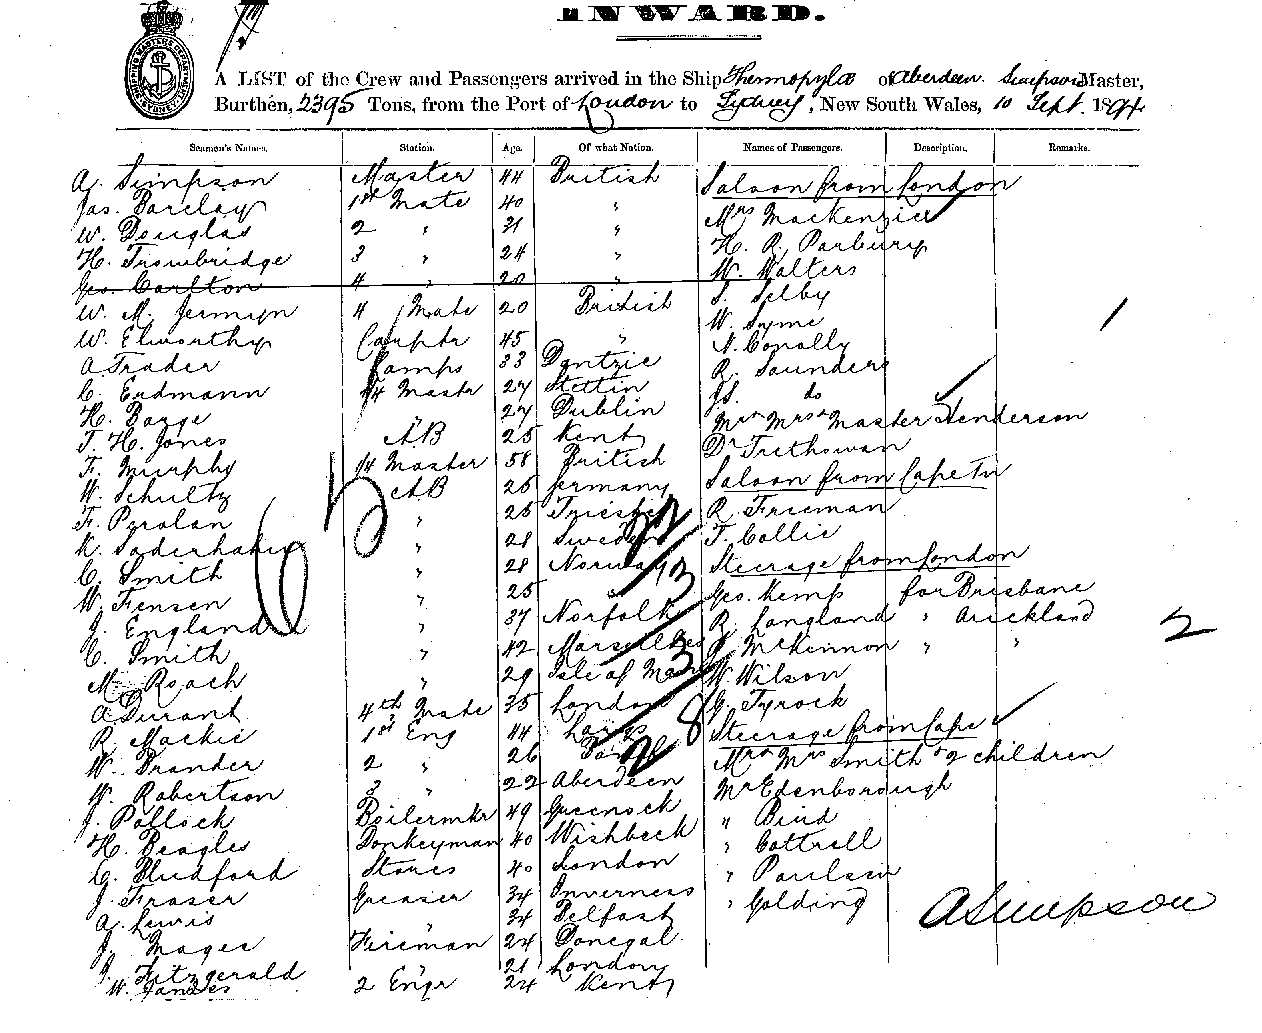 INWARD.
A LIST of the Crew and Passengers arrived in the Ship Thermopylæ of Aberdeen. Simpson Master,
Burthen, 2395 Tons, from the Port of London to Sydney, New South Wales, 10 Sept. 1894
Seamen's Names. Station. Age. Of what Nation. Names of Passengers. Description. Remarks.
A. Simpson Master 44 British Saloon from London
Jas. Barclay 1st Mate 40 " Mrs Mackenzie
W. Douglas 2 " 31 " H. R. Parbury
H. Trowbridge 3 " 24 " W. Walters
Geo. Carlton 4 " 20 " S. Selby
W. M. Jermyn 4 Mate 20 British W. Syme
W. Elworthy Carptr 45 " N. Conally
A. Frader Lamps 33 Dantzic R. Saunders
C. Erdmann Qr Master 27 Stettin Js. do
H. Barge " 27 Dublin Mr & Mrs & Master Henderson
T. H. Jones AB 25 Kent Dr Trethowan
F. Murphy Qr Master 58 British Saloon from Cape Tn
W. Schultz AB 25 Germany R. Frieman
F. Parolan " 25 Trieste T. Collie
K. " 21 Sweden Steerage from London
C. Smith " 28 Norway Geo. Kemp for Brisbane
W. Jensen " 25 " R. Langland " Auckland
J. England " 37 Norfolk J. McKinnon " "
C. Smith " 42 Marseilles W. Wilson
M. Roach " 29 Isle of Man G. Tyrock
A. Durant 4th Mate 35 London Steerage from Cape
R. Mackie 1st Eng 44 Largs Mr & Mrs Smith & 2 children
W. Brander 2 " 26 Mr Edenborough
W. Robertson 3 " 22 Aberdeen " Bird
J. Pollock Boilermkr 49 Greenock " Cottrell
H. Beagles Donkeyman 40 Wishbeck " Paulsen
C. Bludford Stores 40 London " Golding
J. Fraser Greaser 34 Inverness
A. Lewis " 34 Belfast
J. Magee Fireman 24 Donegal
J. Fitzgerald " 21 London
W. 2 Engr 24 Kent
A Simpson
1
2
22
3
3
28